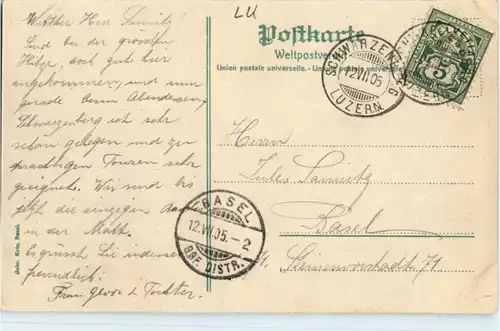 Werther Herr Saunitz!
Sind bei der grössten
Hitze, doch gut hier
angekommen, und nun
gerade beim Abendessen,
Schwarzenberg ist sehr
schön gelegen und zu
prachtigen Touren sehr
geeignet. Wir sind bis
jetzt die einzigen
in der
Es grüsst Sie indessen
freundlich
Frau & Tochter
LU
Postkarte
Weltpostver
Union postale universelle. - Union posta
SCHWARZENBERG
12.VII.05
LUZERN
5
Herrn
Jules Saunitz
Basel
Steinenvorstadt 71
BASEL
12.VII.05.-2
BRF. DISTR.
Gebr. Metz, Basel